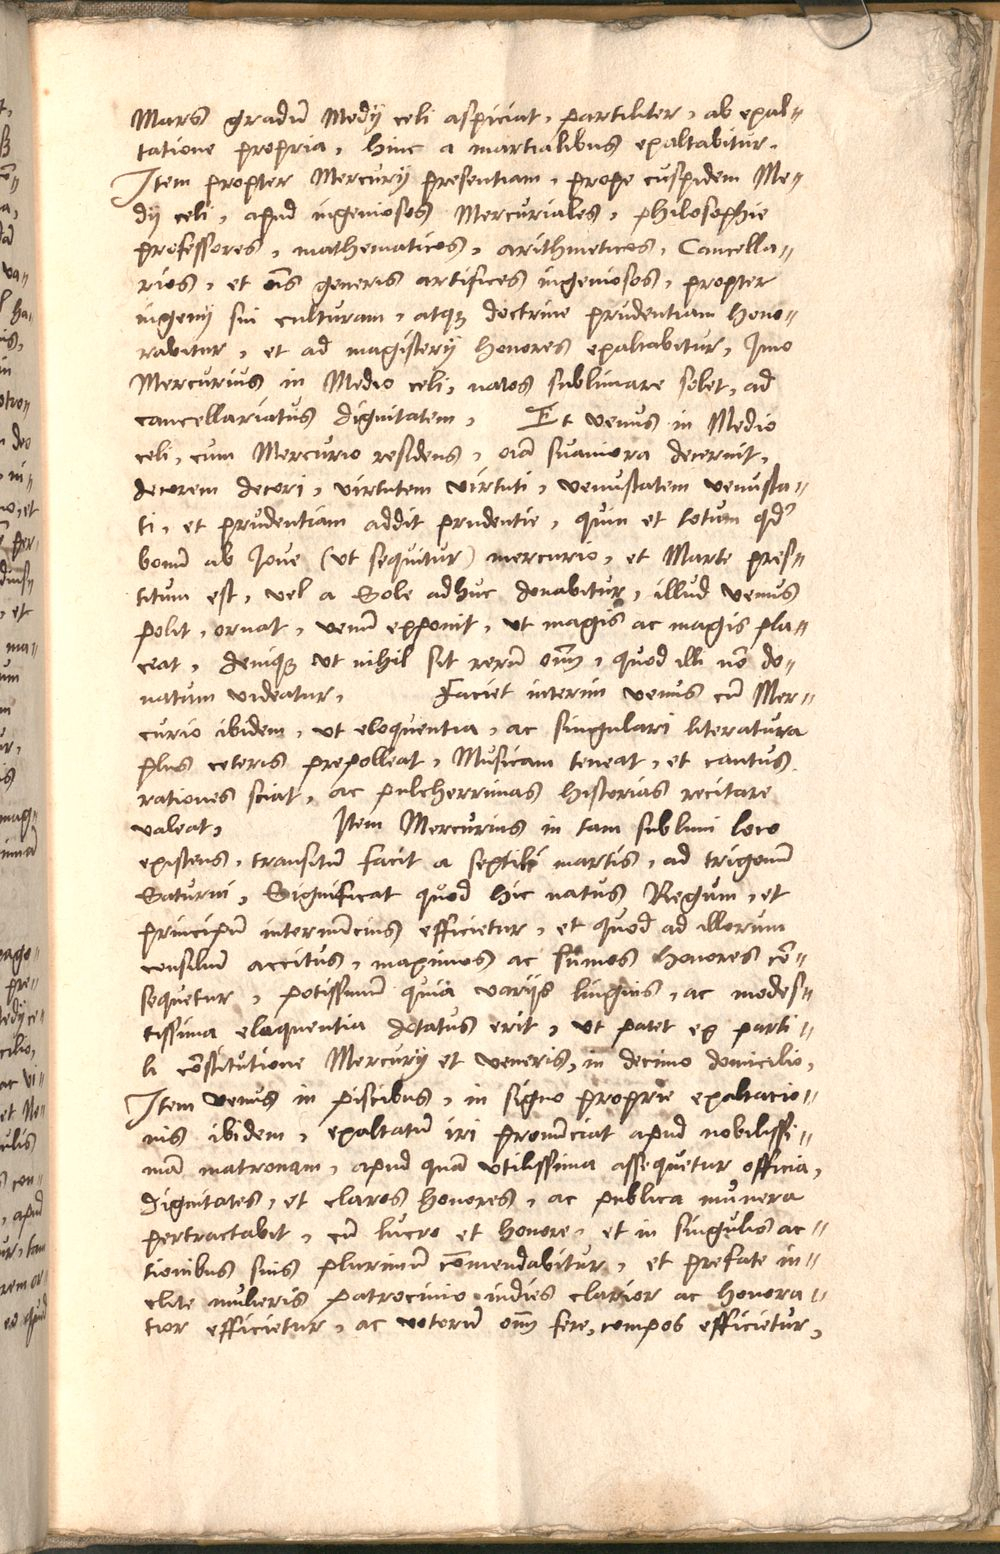 Mars gradū Medij celi aspiciat, partiliter, ab exal=
tatione propria, hinc a martialibus exaltabitur.
Item propter Mercurij presentiam, prope cuspidem Me=
dij celi, apud ingeniosos Mercuriales, philosophie
professores, mathematicos, arithmeticos, Cancella=
rios, et oīs generis artifices ingeniosos, propter
ingenij sui culturam, atqꝫ doctrine prudentiam hono=
rabitur, et ad magisterij honores exaltabitur, Imo
Mercurius in Medio celi, natos sublimare solet, ad
cancellariatus dignitatem, Et Venus in Medio
celi, cum Mercurio residens, oīa suaviora decernit,
decorem decori, virtutem virtuti, venustatem venusta=
ti, et prudentiam addit prudentie, quin et totum qd'
bonū ab Jove (ut sequitur) mercurio, et Marte pres=
titum est, vel a Sole adhuc donabitur, illud Venus
polit, ornat, venū exponit, ut magis ac magis pla=
ceat, deniqꝫ ut nihil sit rerū om̄, quod illi nō do=
natum videatur, Faciet interim Venus cū Mer=
curio ibidem, ut eloquentia, ac singulari literatura
plus ceteris prepolleat, Musicam teneat, et cantus
rationes sciat, ac pulcherrimas historias recitare
valeat, Item Mercurius in tam sublimi loco
existens, transitū facit a sextili martis, ad trigonū
Saturni, Significat quod hic natus Regum, et
principū internūcius efficietur, et quod ad illorum
consiliū accitus, maximos ac sūmos honores cō=
sequetur, potissimū quia varijs linguis, ac modes=
tissima eloquentia dotatus erit, ut patet ex parti=
li cōstitutione Mercurij et Veneris, in decimo domicilio,
Item Venus in piscibus, in signo proprie exaltatio=
nis ibidem, exaltatū iri pronūciat apud nobilissi=
mā matronam, apud quā utilissima assequetur officia,
dignitates, et claros honores, ac publica munera
pertractabit, cū lucro et honore, et in singulis ac=
tionibus suis plurimū cōmendabitur, et prefate in=
clite mulieris patrocinio indies clarior ac honora=
tior efficietur, ac votorū om̄ fere, compos efficietur,